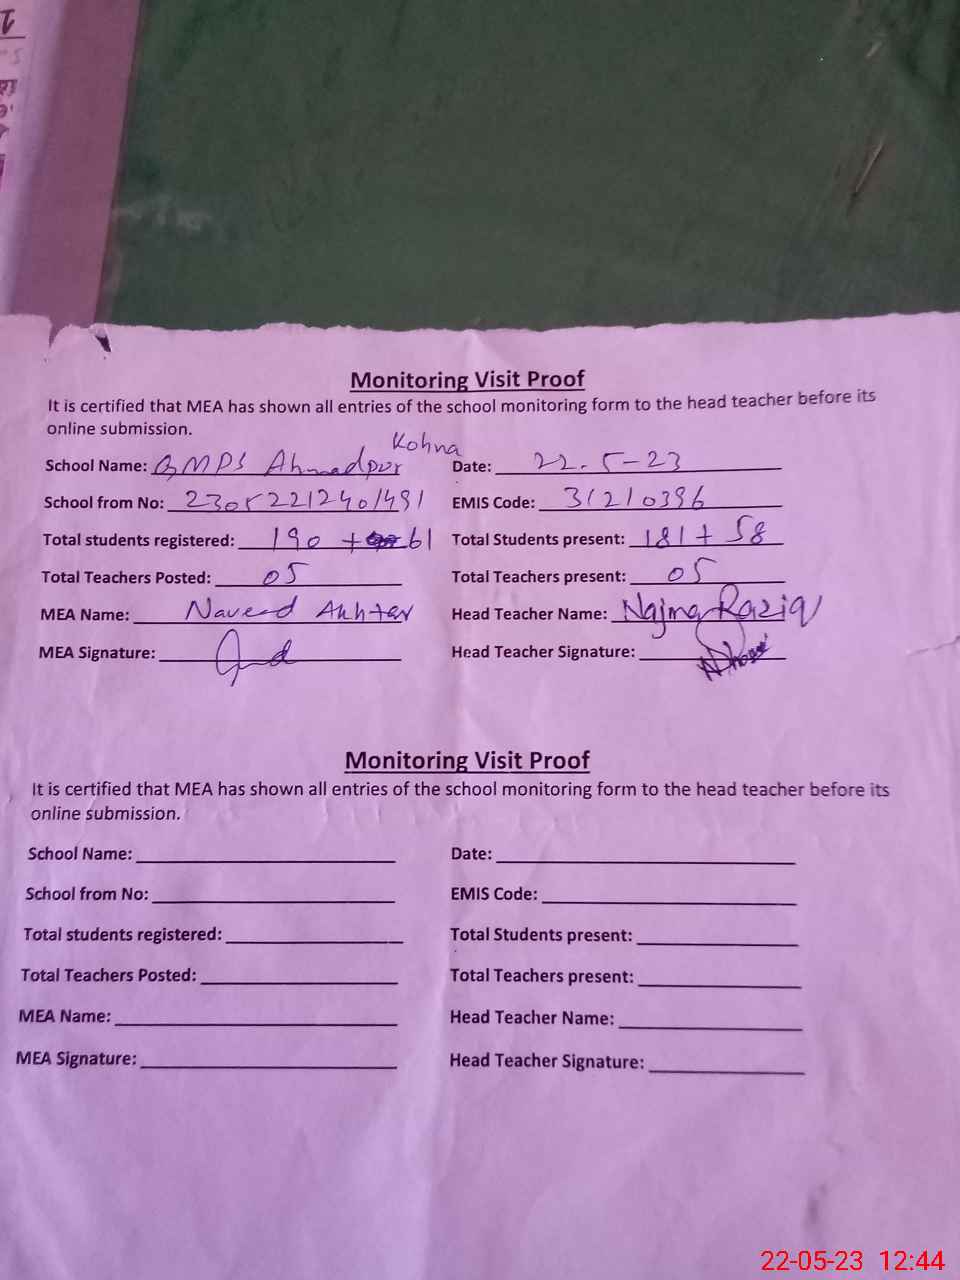 Monitoring Visit Proof
It is certified that MEA has shown all entries of the school monitoring form to the head teacher before its
online submission.
Kohna
School Name: GMPS Ahmadpur Date: 22-5-23
School from No: 23052212401491 EMIS Code: 31210396
Total students registered: 190 + 61 Total Students present: 181 + 58
Total Teachers Posted: 05 Total Teachers present: 05
MEA Name: Naveed Akhtar Head Teacher Name: Najma Raziq
MEA Signature: Head Teacher Signature:
Monitoring Visit Proof
It is certified that MEA has shown all entries of the school monitoring form to the head teacher before its
online submission.
School Name: Date:
School from No: EMIS Code:
Total students registered: Total Students present:
Total Teachers Posted: Total Teachers present:
MEA Name: Head Teacher Name:
MEA Signature: Head Teacher Signature:
22-05-23 12:44